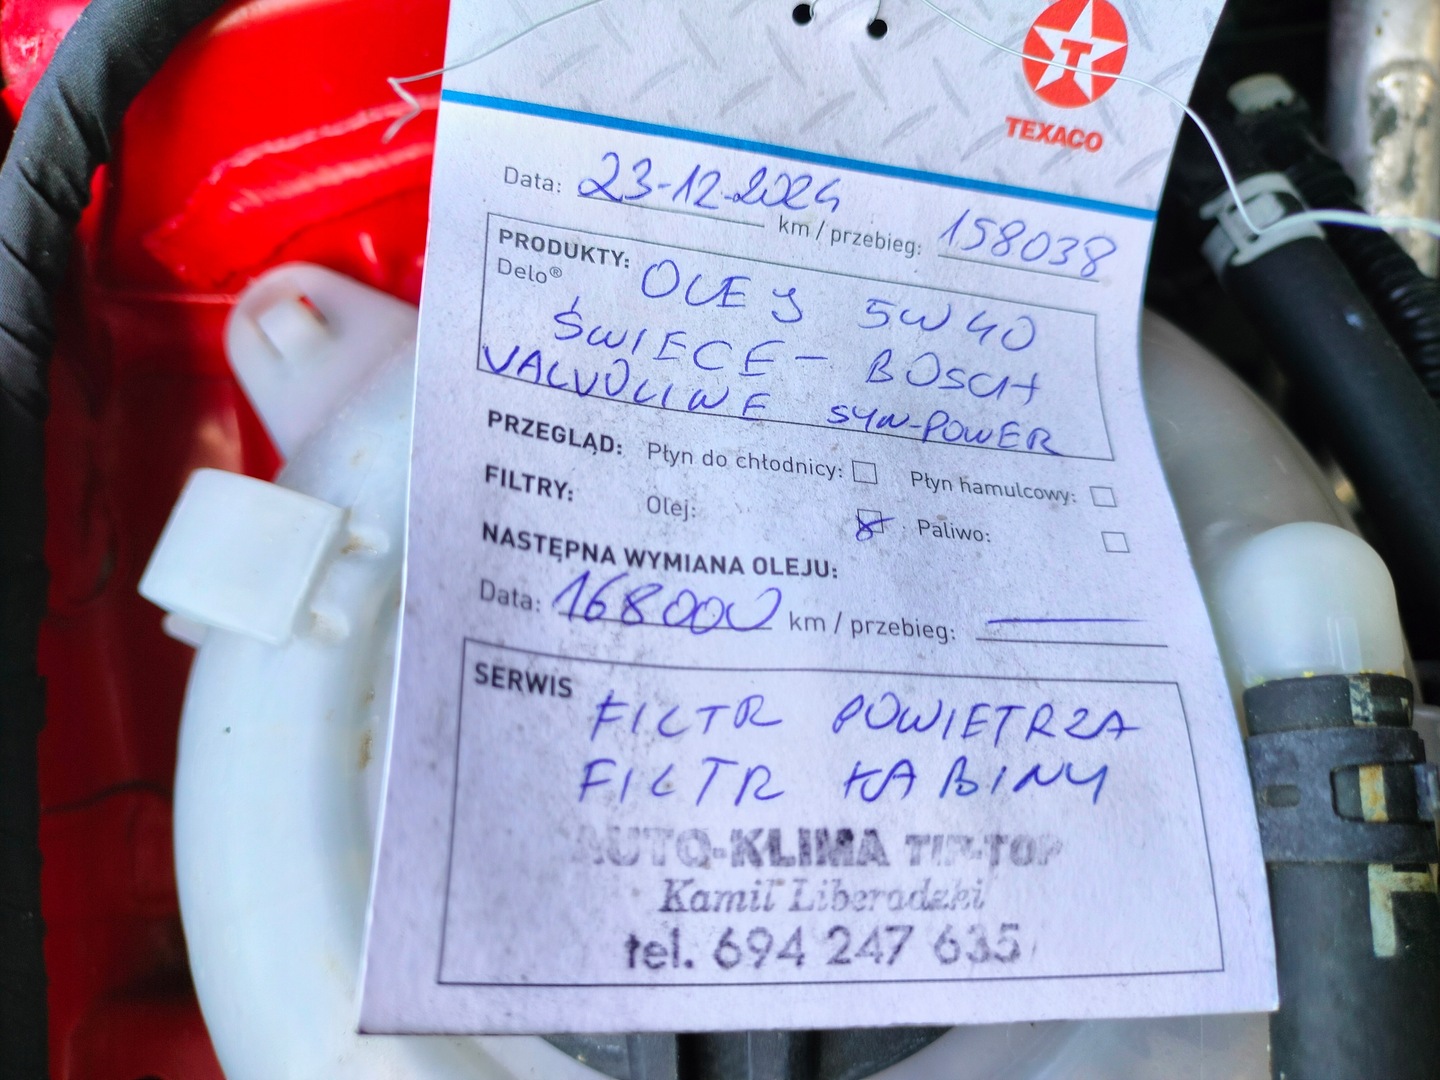 TEXACO
Data: 23-12-2024 km / przebieg: 158038
PRODUKTY: OLEJ 5W40
Delo®
ŚWIECE - BOSCH
VALVOLINE SYN-POWER
PRZEGLĄD: Płyn do chłodnicy: Płyn hamulcowy:
FILTRY: Olej: Paliwo:
NASTĘPNA WYMIANA OLEJU:
Data: 168000 km / przebieg: —
SERWIS
FILTR POWIETRZA
FILTR KABINY
AUTO-KLIMA TIP-TOP
Kamil Liberadzki
tel. 694 247 635